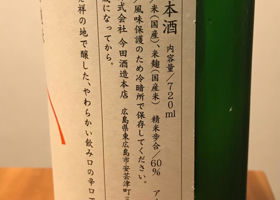 本酒 内容量/720ml
米(国産)、米麹(国産米) 精米歩合/60% ア
風味保護のため冷暗所で保存してください。
式会社 今田酒造本店 広島県東広島市安芸津町三
になってから。
祥の地で醸した、やわらかい飲み口の辛口で